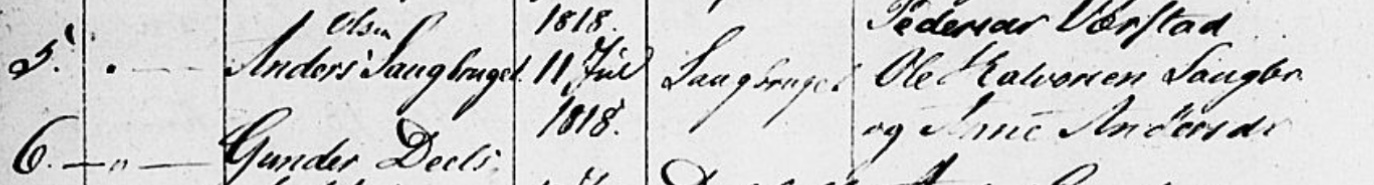 1818. Pedersdr Værstad
Olsen
5. Anders Saugbruget 11 Jul Saugbruget Ole Halvorsen Saugbr.
1818. og Anne Andersdr
6. — " — Gunder Deels.